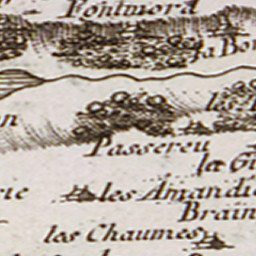 Pontmord
la Bou
les
on
Passereu
la Gu
rie
les Amandie
Brain
les Chaumes